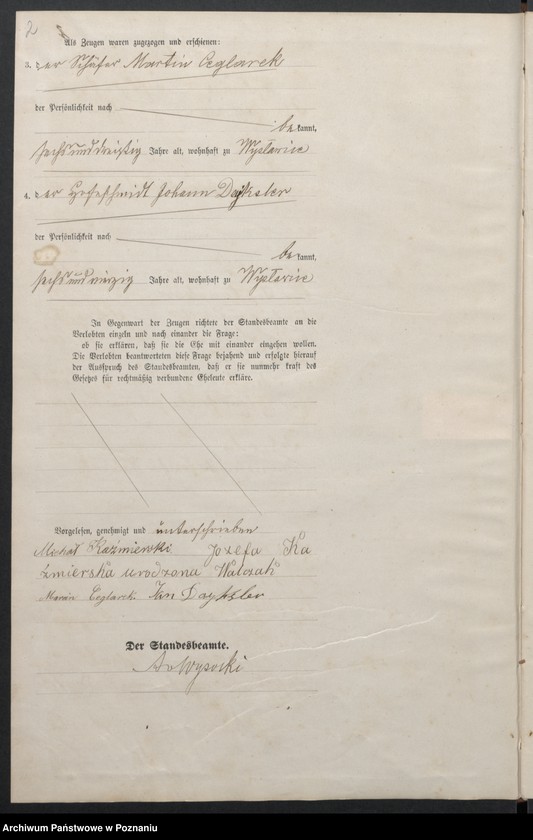 2
Als Zeugen waren zugezogen und erschienen:
3. der Schäfer Martin Ceglarek
der Persönlichkeit nach
bekannt,
sechsunddreißig Jahre alt, wohnhaft zu Wysławice
4. der Johann Dajksler
der Persönlichkeit nach
bekannt,
sechsundvierzig Jahre alt, wohnhaft zu Wysławice
In Gegenwart der Zeugen richtete der Standesbeamte an die
Verlobten einzeln und nach einander die Frage:
ob sie erklären, daß sie die Ehe mit einander eingehen wollen.
Die Verlobten beantworteten diese Frage bejahend und erfolgte hierauf
der Ausspruch des Standesbeamten, daß er sie nunmehr kraft des
Gesetzes für rechtmäßig verbundene Eheleute erkläre.
Vorgelesen, genehmigt und unterschrieben
Michał Kaźmierski Józefa Ka
źmierska urodzona Walczak
Ceglarek Jan Dayksler
Der Standesbeamte.
Wysocki
Archiwum Państwowe w Poznaniu